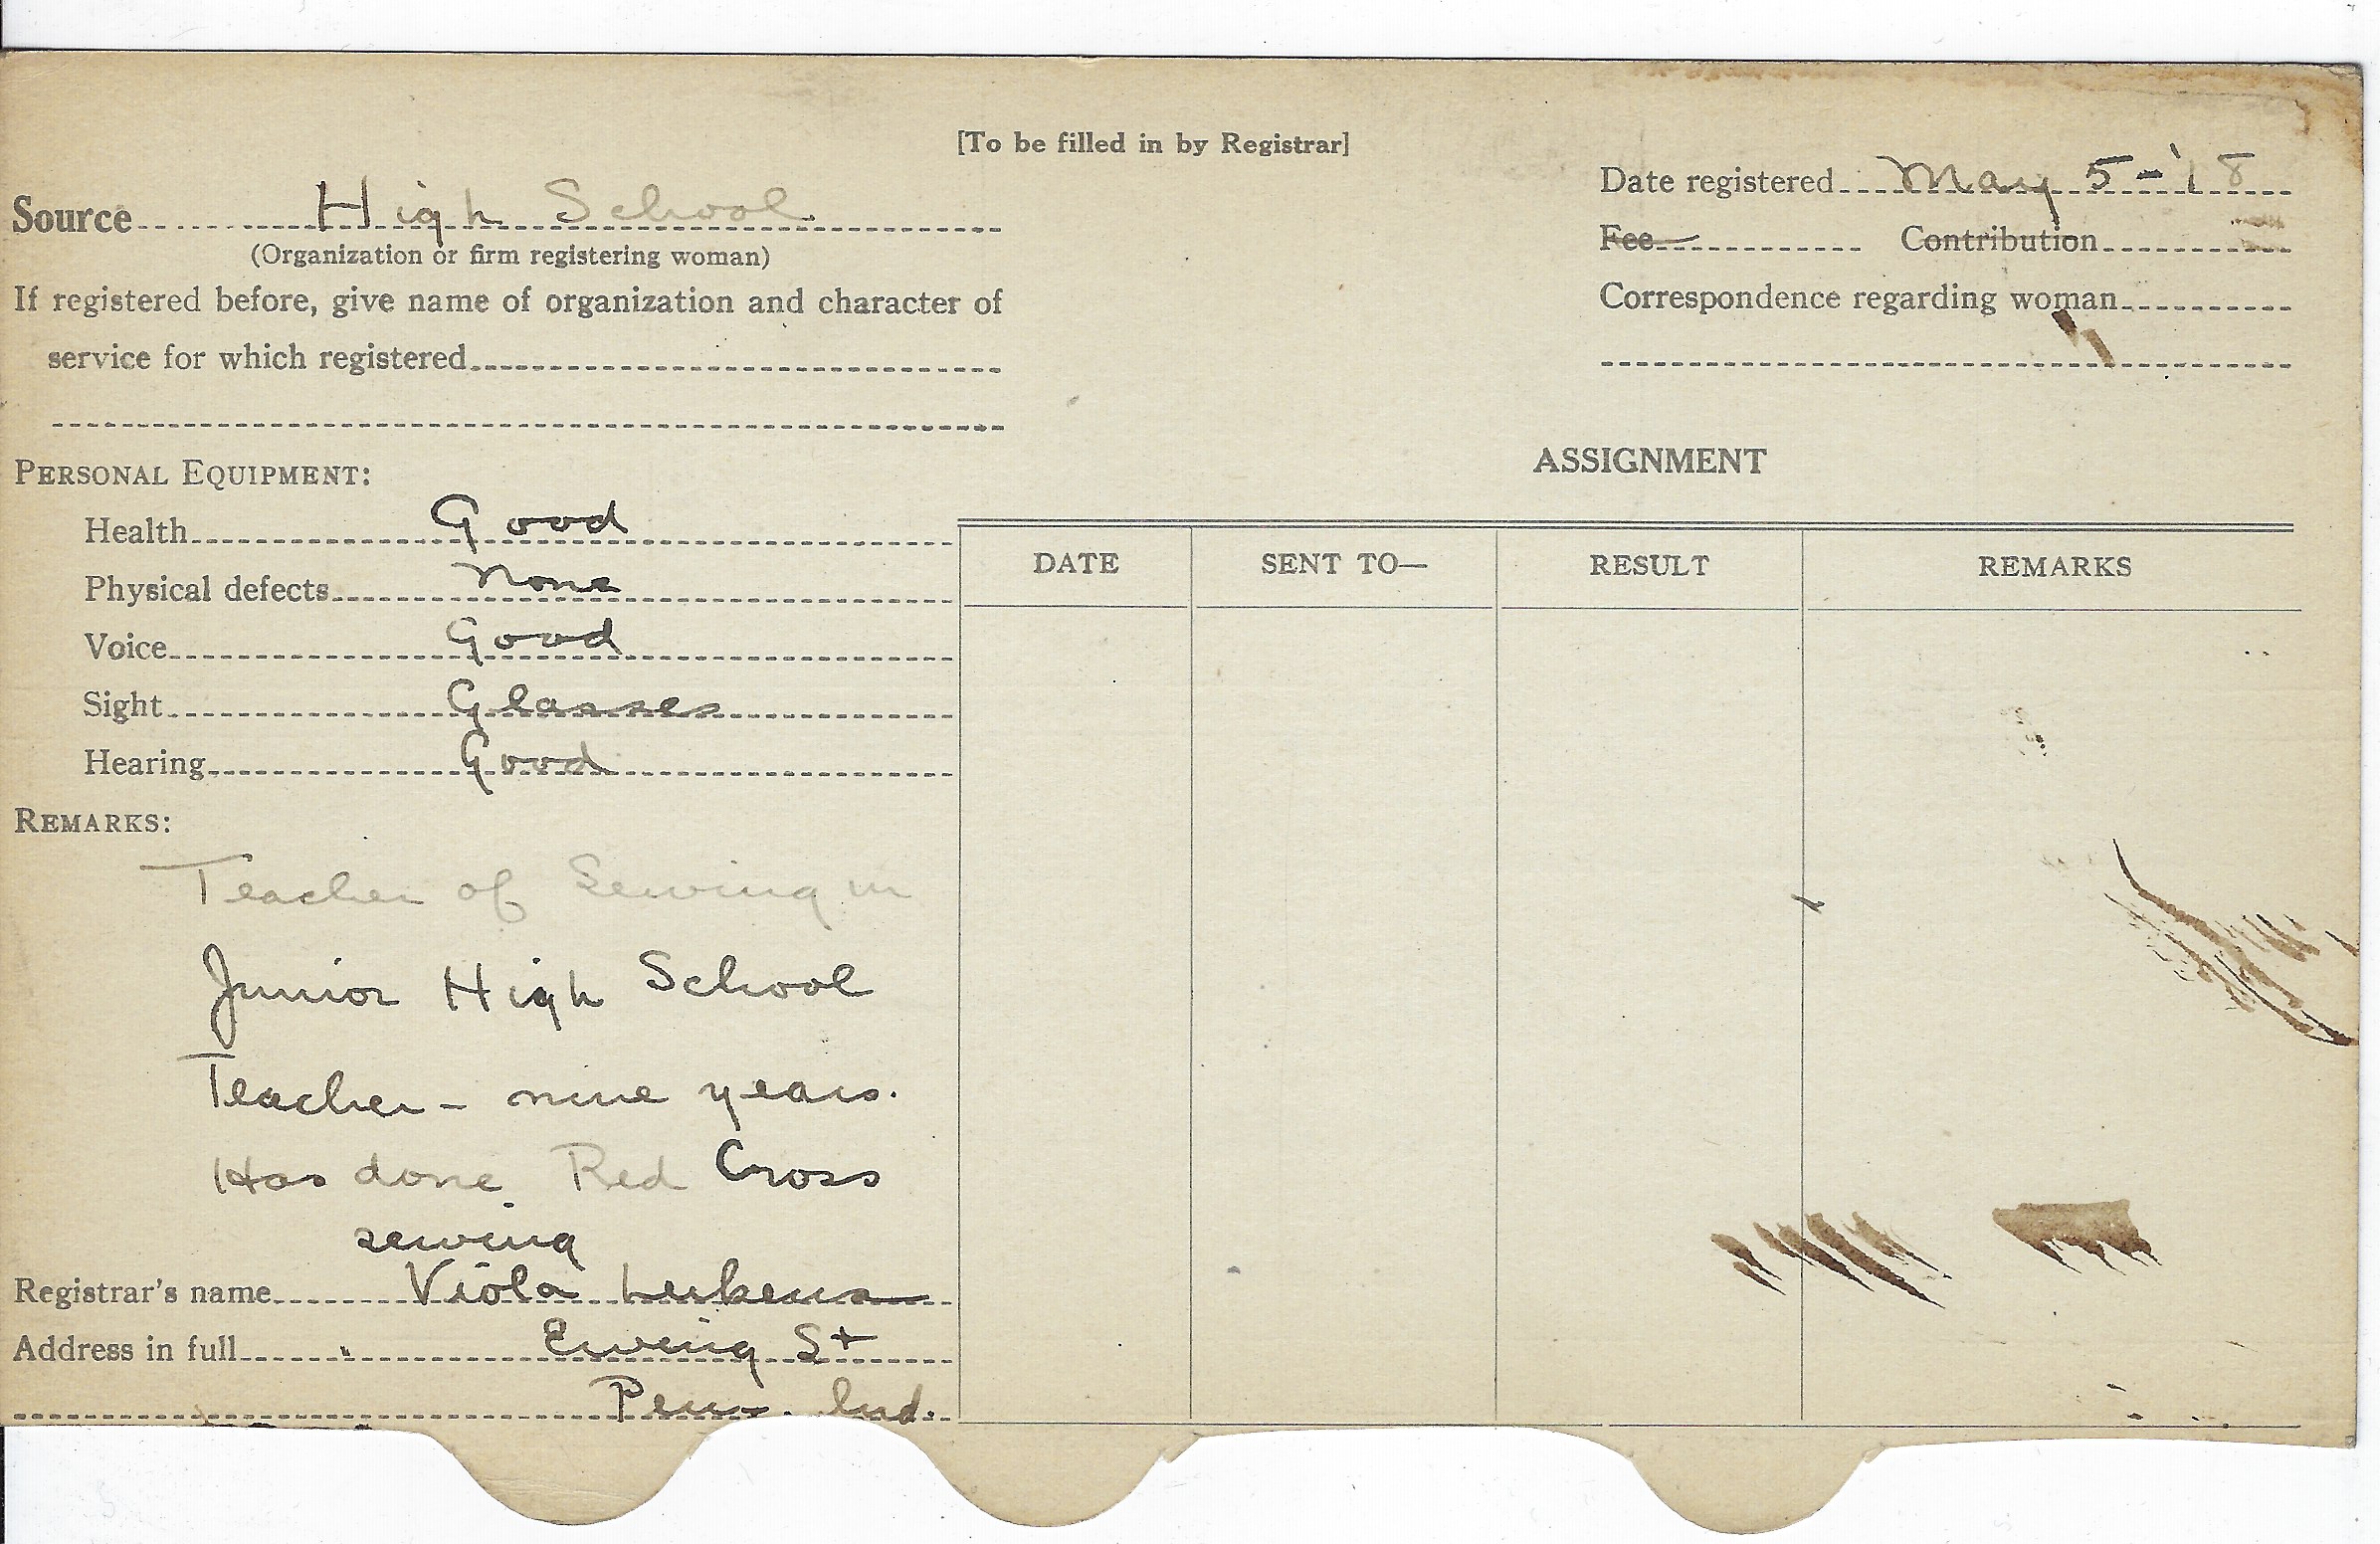 [To be filled in by Registrar]
Source High School
(Organization or firm registering woman)
If registered before, give name of organization and character of
service for which registered
Date registered May 5-'18
Fee Contribution
Correspondence regarding woman
PERSONAL EQUIPMENT:
Health Good
Physical defects None
Voice Good
Sight Glasses
Hearing Good
REMARKS:
Teacher of Sewing in
Junior High School
Teacher - nine years.
Has done Red Cross
sewing
Registrar's name Viola Lukens
Address in full Ewing St
Peru, Ind.
ASSIGNMENT
DATE SENT TO— RESULT REMARKS